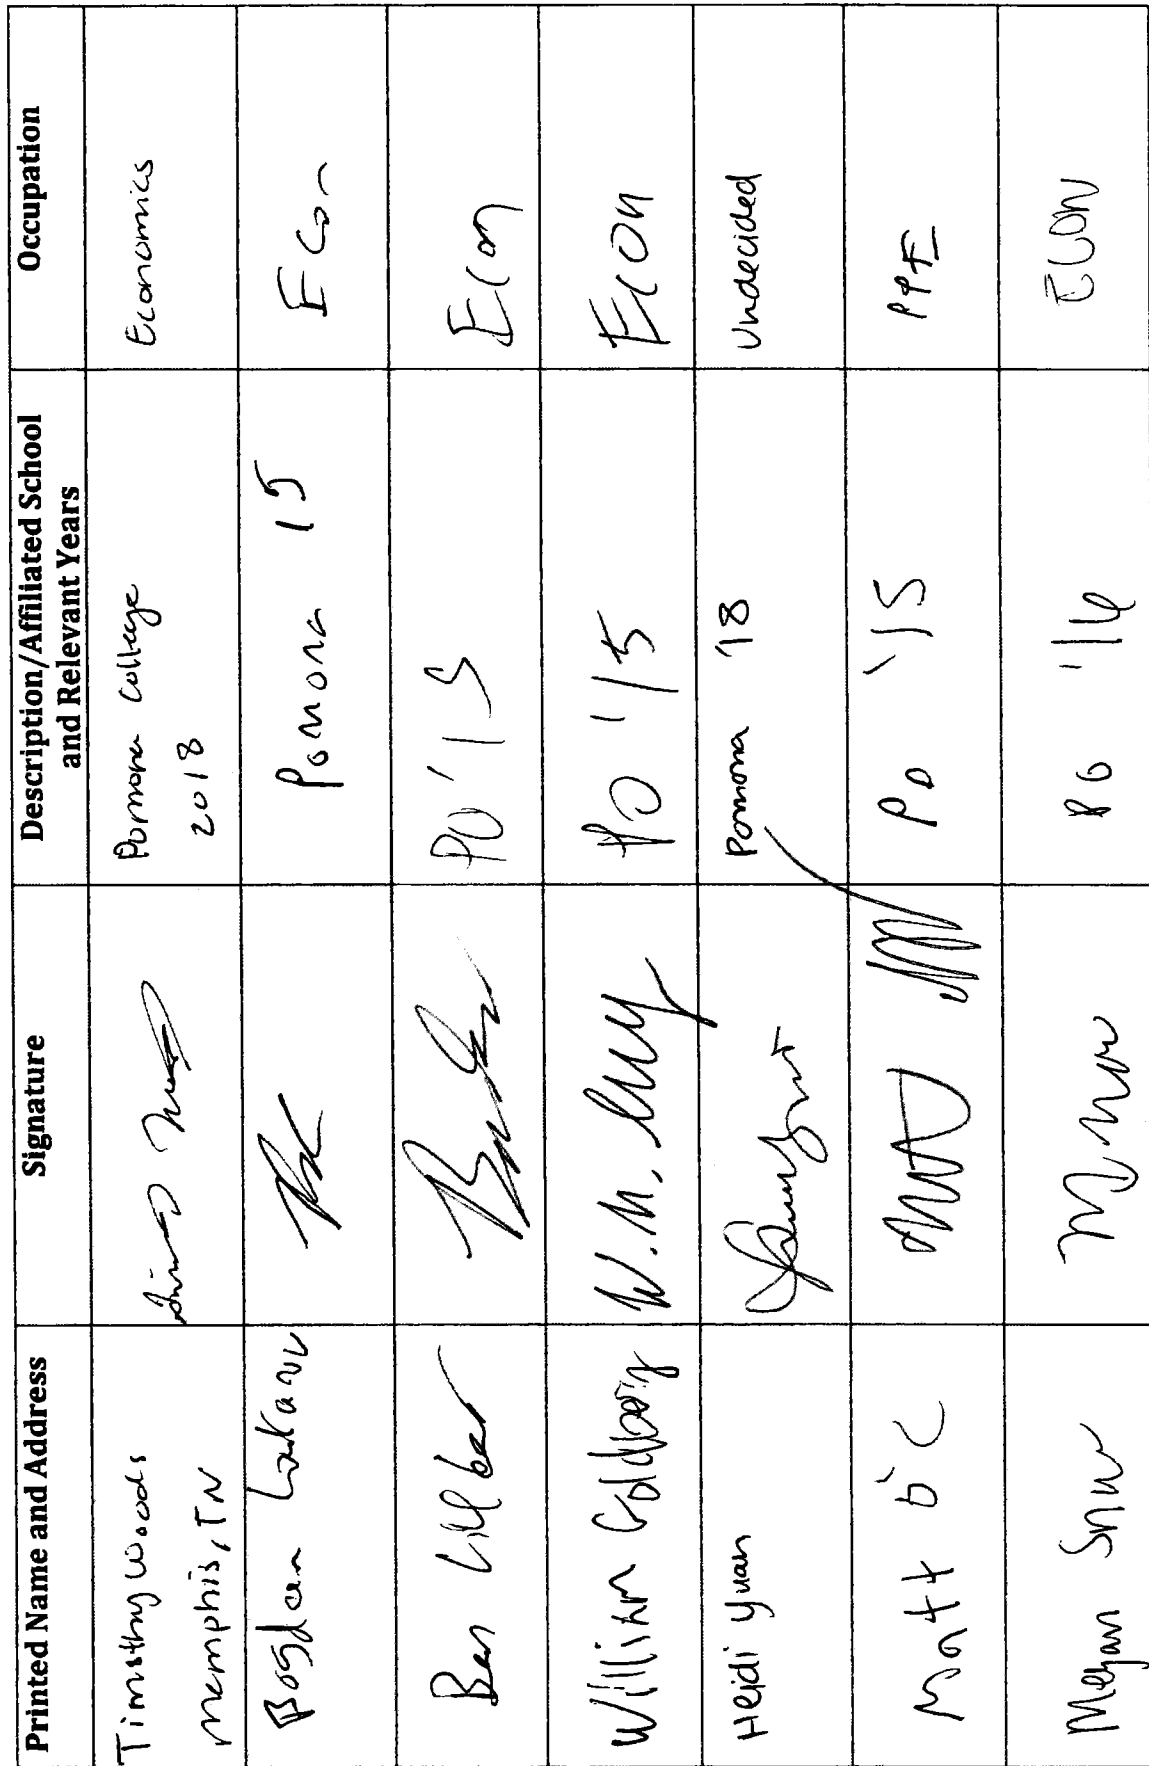 Printed Name and Address Signature Description/Affiliated School and Relevant Years Occupation
Timothy Woods
Memphis, TN
Pomona College
2018
Economics
Bogdan
Pomona 15
Econ
Ben
PO '15
Econ
William Goldberg
W.M.
PO '15
Econ
Heidi Yuan
Pomona '18
Undecided
Matt O'C
PO '15
PPE
Megan Snow
PO '16
ECON